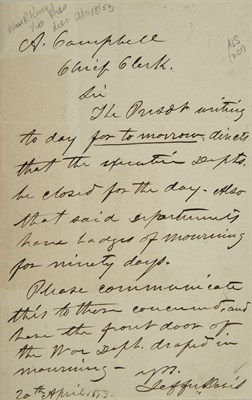 A. Campbell
Chief Clerk.
Sir
The Presdt writing
to day for to morrow, directs
that the executive Depts.
be closed for the day. Also
that said departments
have badges of mourning
for ninety days.
Please communicate
this to those concerned, and
have the front door of
the War Dept. draped in
mourning —
Jeffn Davis
20th April 1853.